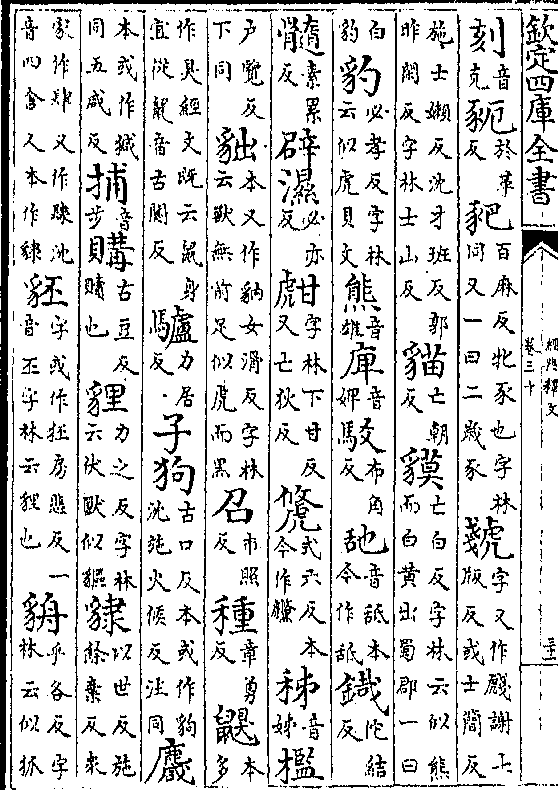 欽定四庫全書
經典釋文
卷三十
刻音克豟於革反豝百麻反牝豕也字林同又一曰二歲豕虥字又作戲謝士版反或士簡反
施士嬾反沈才班反郭昨閑反字林士山反貓亡朝反貘亡白反字林云似熊而白黄出蜀郡一曰
白豹必孝反字林云似虎貝文熊音雄庳音婢駮布角反䑛音舐本今作舐鐵他結反
髓素累反辟濕必亦反甝字林下甘反又亡狄反虪式六反本今作儵秭音姊檻
戶覽反下同貀本又作豽女滑反字林云獸無前足似虎而黑召市照反種章勇反鼳本多
作狊經文既云鼠身宜從鼠音古闃反驢力居反子狗古口反本或作豿沈施火候反注同麙
本或作羬同五咸反捕音步購古豆反贖也貍力之反字林云伏獸似貙隸以世反施餘棄反衆
家作肆又作肂沈音四舍人本作隸豾字或作狉房悲反一音丕字林云狸也貈乎各反字林云似狐